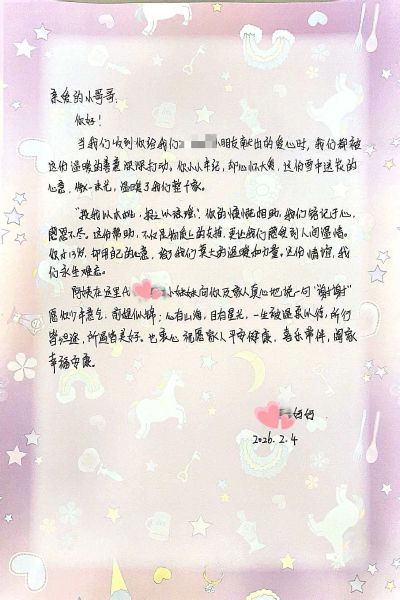 亲爱的小哥哥,
你好!
当我们收到你给我们 小朋友献出的爱心时,我们都被
这份温暖的善意深深打动,你小小年纪,却心怀大爱,这份雪中送炭的
心意,像一束光,温暖了我们整个家。
"投我以木桃,报之以琼瑶",你的慷慨相助,我们铭记于心,
感恩不尽。这份帮助,不仅是物质上的支持,更让我们感受到人间温情。
你才13岁,却用自己的心意,给了我们莫大的温暖和力量。这份情谊,我
们永生难忘。
阿姨在这里代 小妹妹向你及家人真心地说一句"谢谢"
愿你少年意气,前程似锦;心有山海,目有星光,一生被温柔以待,所行
皆坦途,所遇皆美好。也衷心祝愿家人平安健康,喜乐常伴,阖家
幸福安康。
2026.2.4